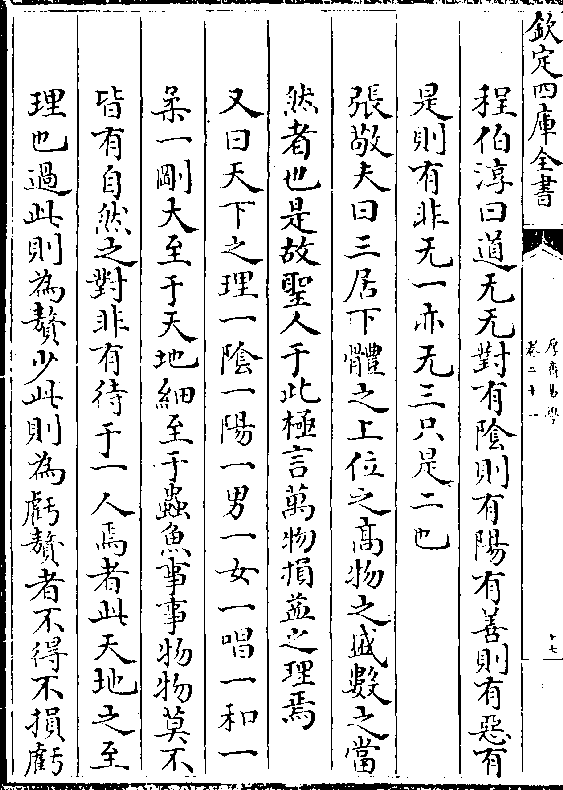 欽定四庫全書
厚齋易學
卷二十一
十七
程伯淳曰道无无對有陰則有陽有善則有惡有
是則有非无一亦无三只是二也
張敬夫曰三居下體之上位之高物之盛數之當
然者也是故聖人于此極言萬物損益之理焉
又曰天下之理一陰一陽一男一女一唱一和一
柔一剛大至于天地細至于蟲魚事事物物莫不
皆有自然之對非有待于一人焉者此天地之至
理也過此則為贅少此則為虧贅者不得不損虧